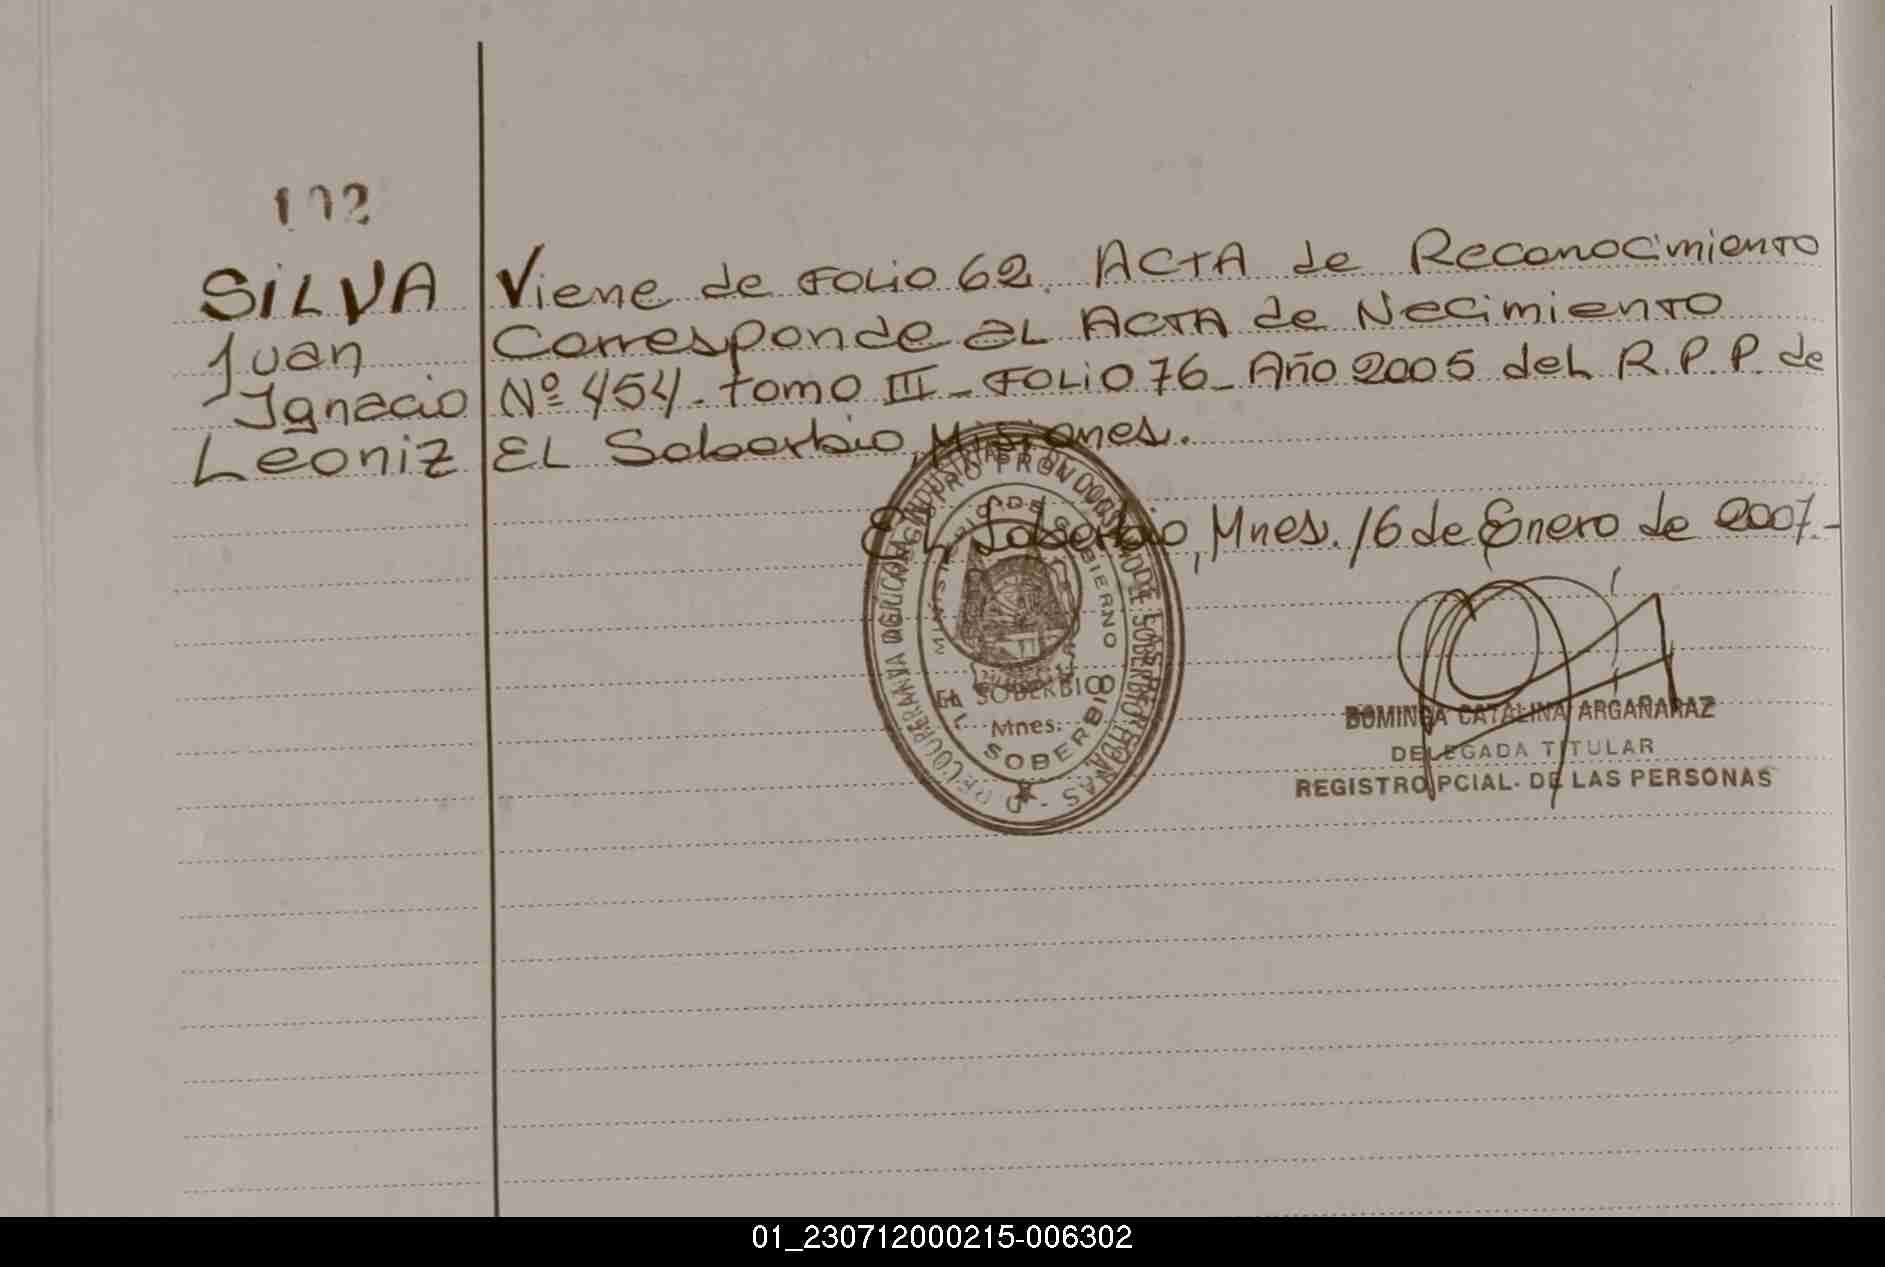 SILVA
Juan
Ignacio
Leoniz
Viene de FOLIO 62. ACTA de Reconocimiento
Corresponde al ACTA de Necimiento
Nº 454. tomo III - FOLIO 76 - Año 2005 del R.P.P. de
EL Soberbio, Misiones.
EL Soberbio, Mnes. 16 de Enero de 2007.-
MINISTERIO DE GOBIERNO
EL SOBERBIO
Mnes.
SOBERBIO
DOMINGA CATALINA ARGAÑARAZ
DELEGADA TITULAR
REGISTRO PCIAL. DE LAS PERSONAS
01_230712000215-006302